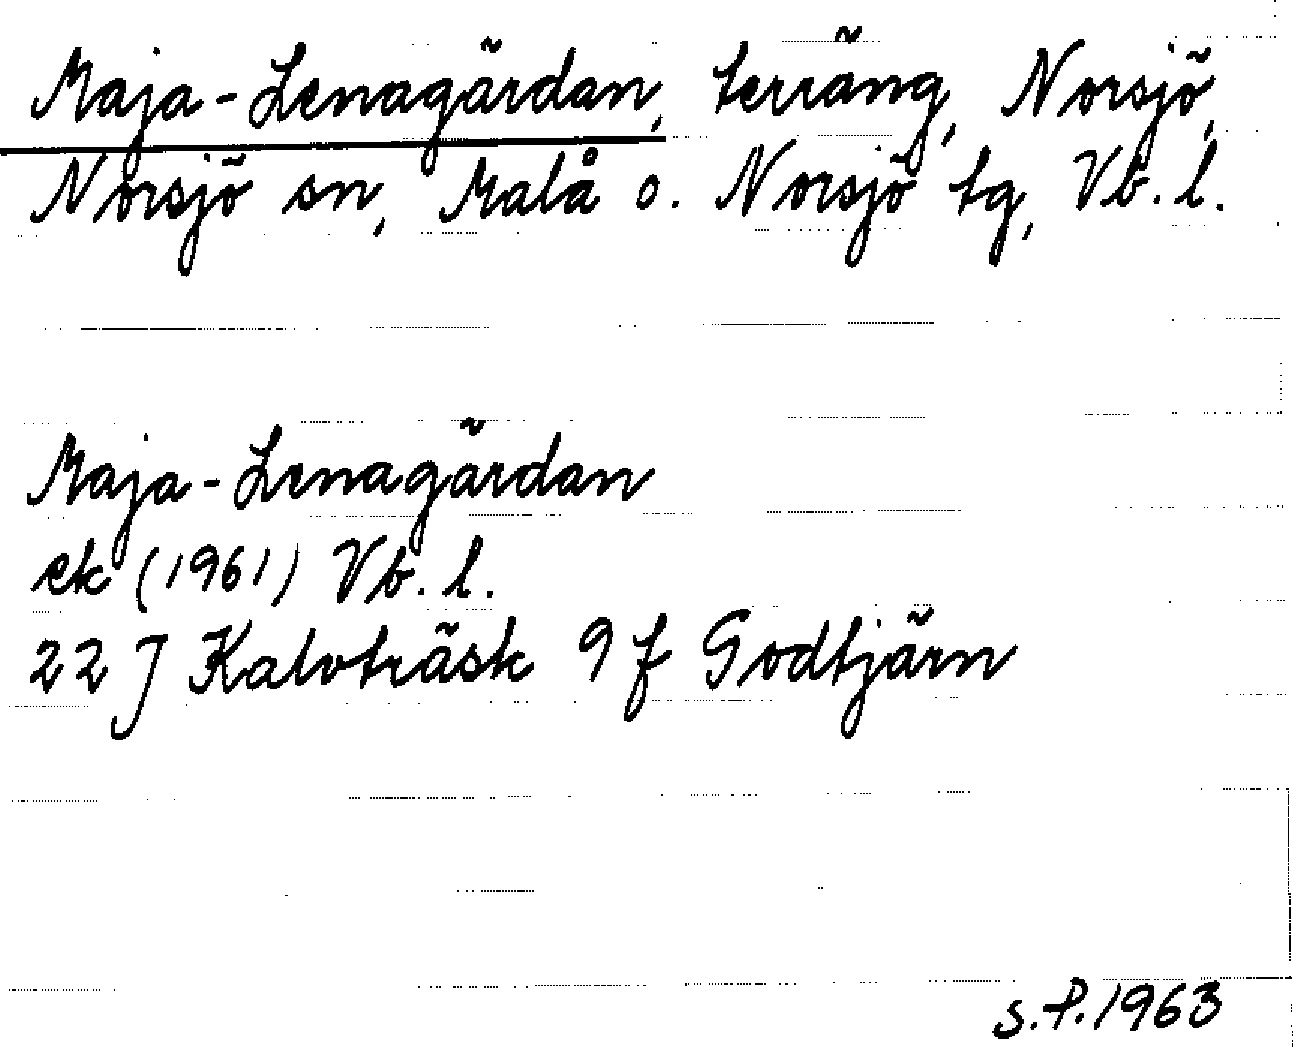 Maja-Lenagärdan, terräng, Norsjö,
Norsjö sn, Malå o. Norsjö tg, Vb. l.
Maja-Lenagärdan
ek (1961) Vb. l.
22 J Kalvträsk 9 f Godtjärn
S.P. 1963